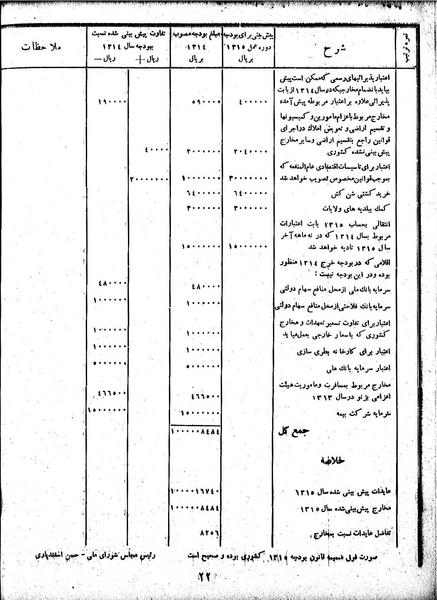 نمره ترتیب
شرح
پیش بینی برای بودجه
دوره عمل ۱۳۱۵
بریال
مبلغ بودجه مصوب
۱۳۱۴
بریال
تفاوت پیش بینی شده نسبت
ببودجه سال ۱۳۱۴
ریال +
ریال —
ملاحظات
اعتبار پذیرائیهای رسمی که ممکن است پیش
بیاید با انضمام مخارجیکه در سال ۱۳۱۴ از بابت
پذیرائی علاوه بر اعتبار مربوطه پیش آمده
۴۰۰۰۰۰ ۵۹۰۰۰۰ ۱۹۰۰۰۰
مخارج مربوط باعزام مامورین و کمیسیونها
و تقسیم اراضی و تعویض املاک و اجرای
قوانین راجع بتقسیم اراضی و سایر مخارج
پیش بینی نشده کشوری
۲۰۴۰۰۰۰ ۲۰۰۰۰۰۰ ۴۰۰۰۰
اعتبار برای تاسیسات اقتصادی عام المنفعه که
بموجب قوانین مخصوص تصویب خواهد شد
۳۰۰۰۰۰۰۰ ۱۰۰۰۰۰۰۰ ۲۰۰۰۰۰۰۰
خرید کشتی شن کش
۶۴۰۰۰۰ ۶۴۰۰۰۰
کمک ببلدیه های ولایات
۳۰۰۰۰۰۰ ۳۰۰۰۰۰۰
انتقالی بحساب ۱۳۱۵ بابت اعتبارات
مربوط بسال ۱۳۱۴ که در نه ماهه آخر
سال ۱۳۱۵ تادیه خواهد شد
۱۵۰۰۰۰۰۰ ۱۵۰۰۰۰۰۰
اقلامی که در بودجه خرج ۱۳۱۴ منظور
بوده و در این بودجه نیست :
سرمایه بانک ملی از محل منافع سهام دولتی
۴۸۰۰۰۰ ۴۸۰۰۰۰
سرمایه بانک فلاحتی از محل منافع سهام دولتی
۱۰۰۰۰۰ ۱۰۰۰۰۰
اعتبار برای تفاوت تسعیر تعهدات و مخارج
کشوری که باسعار خارجی بعمل میاید
اعتبار برای کارخانه بطری سازی
اعتبار سرمایه بانک ملی
مخارج مربوط بمسافرت و ماموریت هیئت
اعزامی بژنو در سال ۱۳۱۳
۴۶۶۵۰۰ ۴۶۶۵۰۰
سرمایه شرکت بیمه
جمع کل
۱۰۰۰۰۰۸۴۸۴
خلاصه
عایدات پیش بینی شده سال ۱۳۱۵
۱۰۰۰۰۱۶۷۴۰
مخارج پیش بینی شده سال ۱۳۱۵
۱۰۰۰۰۰۸۴۸۴
تفاضل عایدات نسبت بمخارج
۸۲۵۶
صورت فوق ضمیمه قانون بودجه ۱۳۱۵ کشوری بوده و صحیح است
رئیس مجلس شورای ملی - حسن اسفندیاری
۲۲